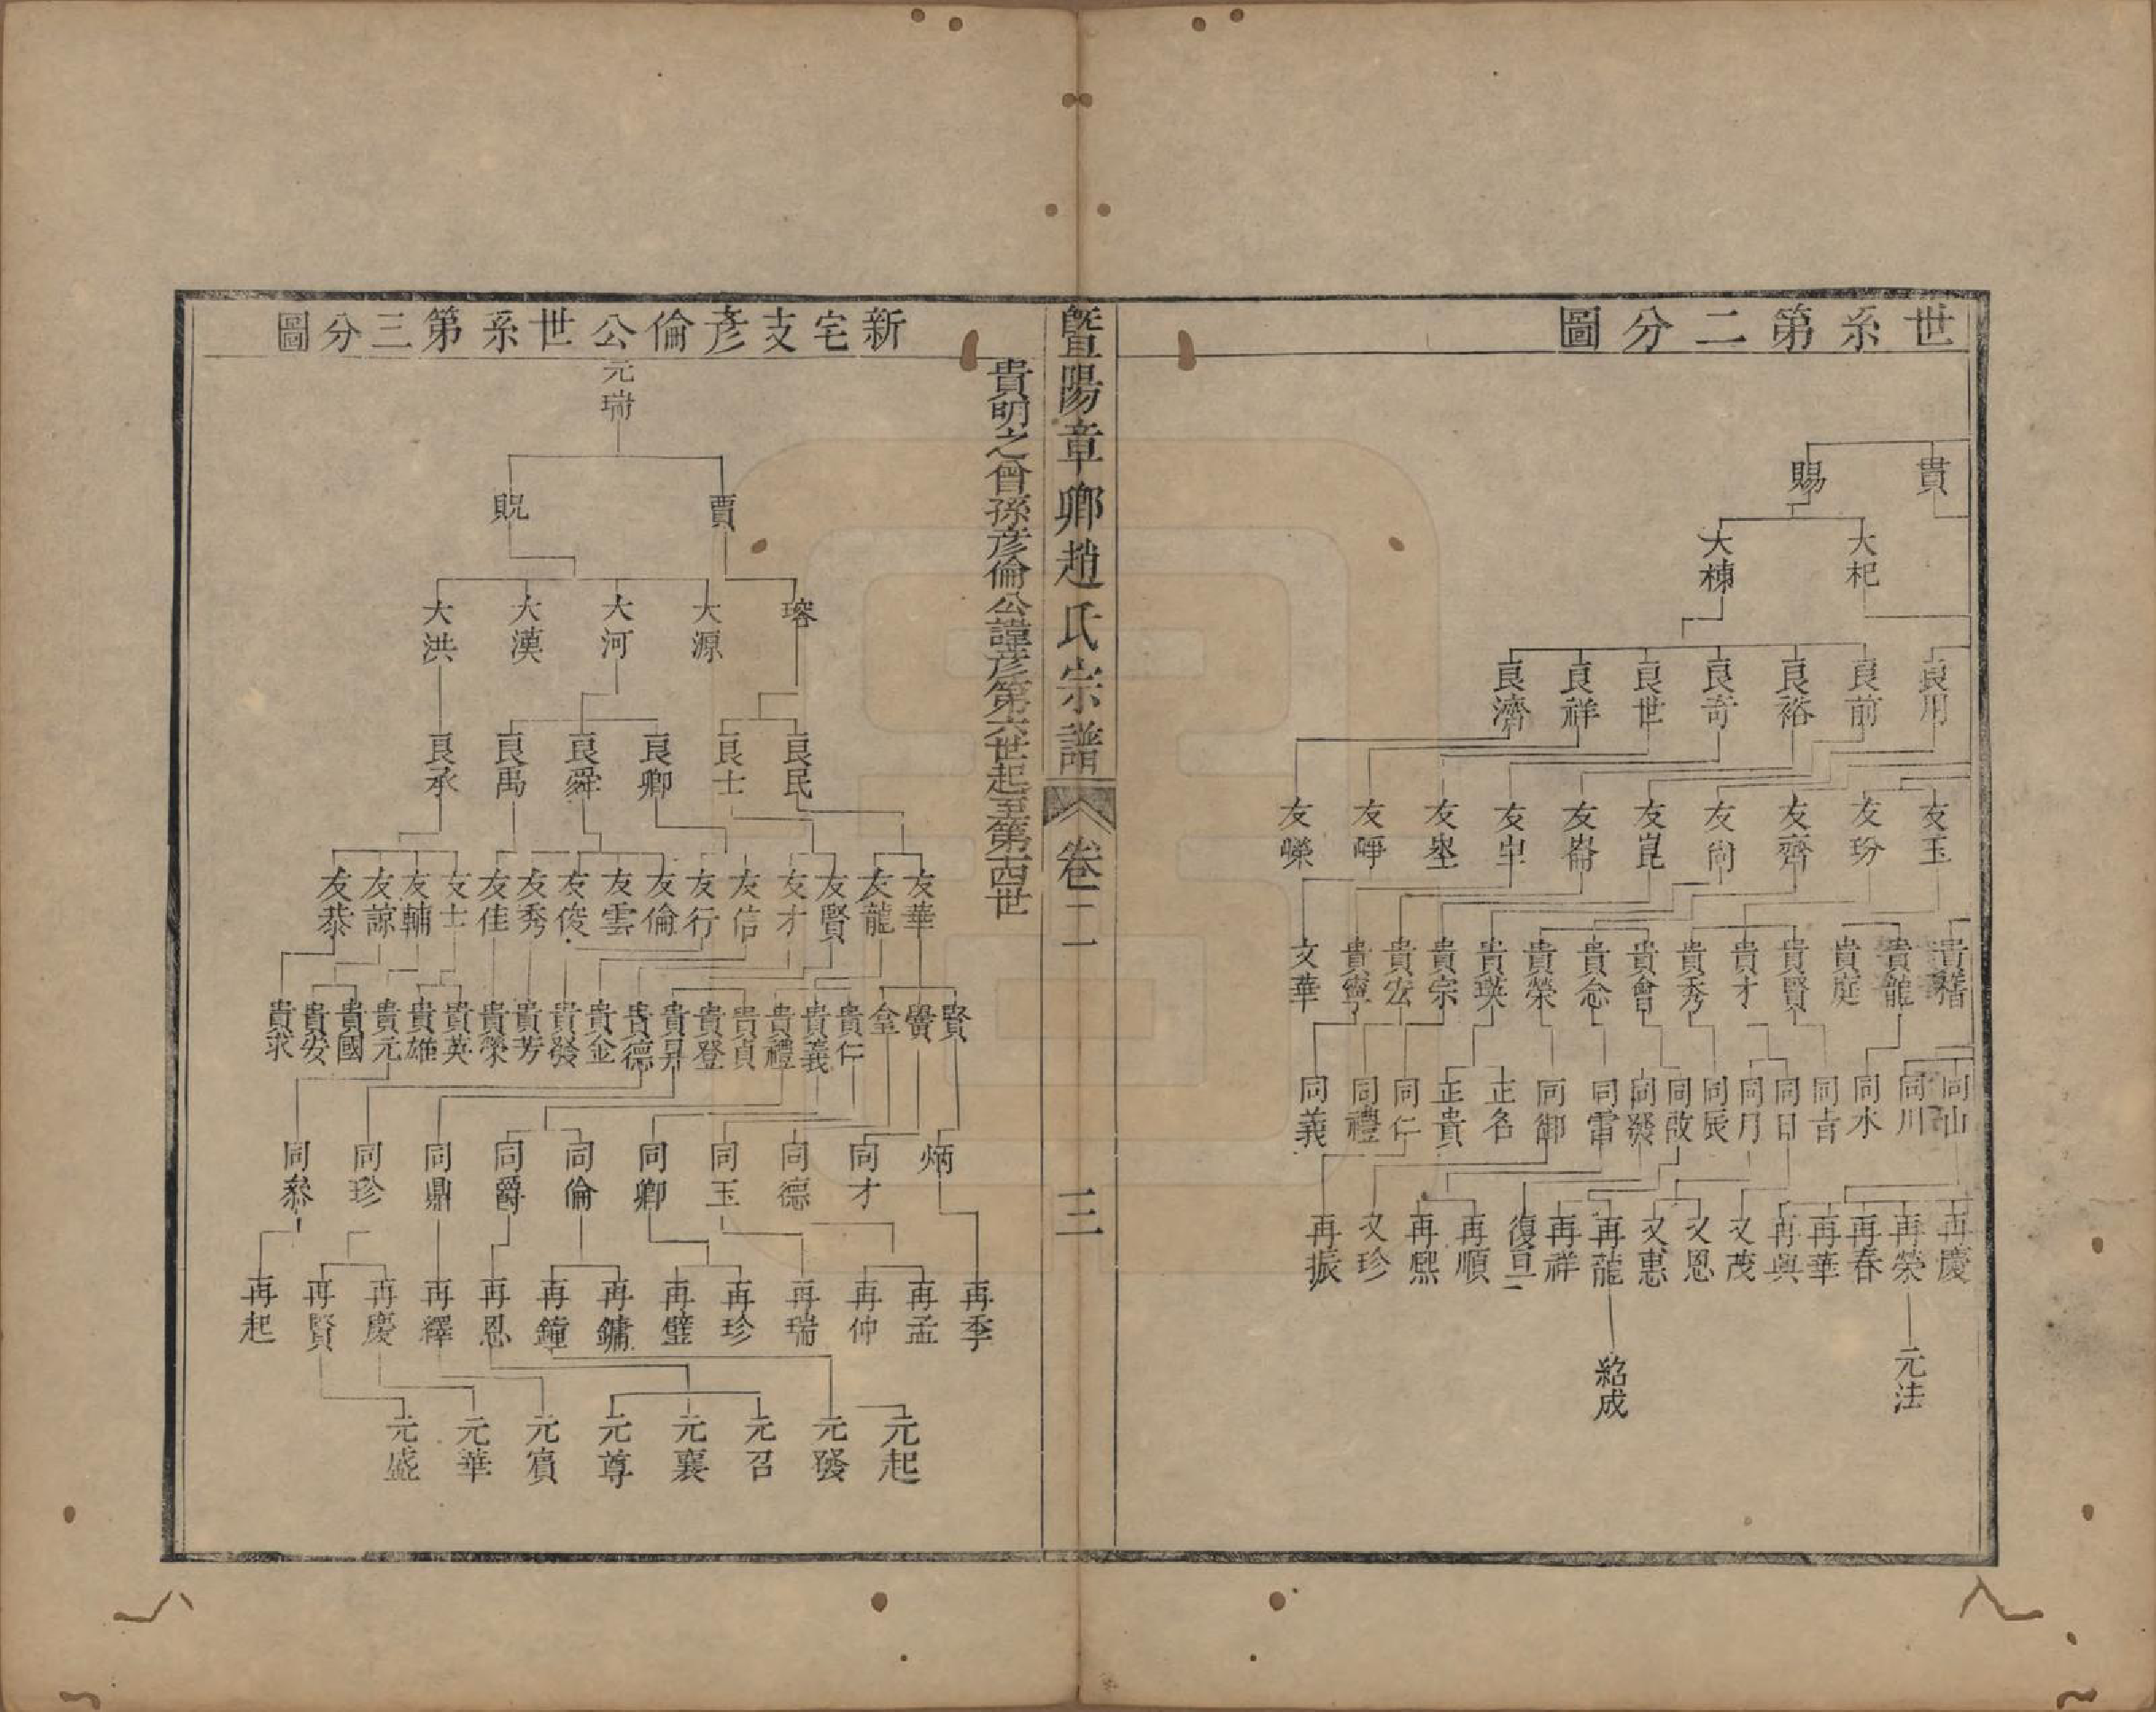 世系第二分圖
貴 賜
大杞 大棟
良用 良前 良裕 良奇 良世 良祥 良濟
友玉 友玢 友齊 友尚 友崑 友崙 友峷 友㟧 友崢 友嶸
貴稽 貴龍 貴庭 貴賢 貴才 貴秀 貴會 貴念 貴榮 貴瑛 貴宗 貴宏 貴寧 文華
同山 同川 同水 同吉 同日 同月 同辰 同啟 同發 同雷 同御 正名 正貴 同仁 同禮 同義
再慶 再榮 再春 再華 再興 文茂 文恩 文惠 再龍 再祥 復亘 再順 再熙 文珍 再振
元法 紹成
暨陽章卿趙氏宗譜 卷二 三
貴明之曾孫彦倫公諱彦第六世起至第十四世
新宅支彥倫公世系第三分圖
元瑞
賈 貺
瑢 大源 大河 大漢 大洪
良民 良士 良卿 良舜 良禹 良承
友華 友龍 友賢 友才 友信 友行 友倫 友雲 友俊 友秀 友佳 友士 友輔 友諒 友恭
賢 黌 金 貴仁 貴義 貴禮 貴貞 貴登 貴昇 貴德 貴金 貴發 貴芳 貴榮 貴英 貴雄 貴元 貴國 貴安 貴求
炳 同才 同德 同玉 同卿 同倫 同爵 同鼎 同珍 同叅
再季 再孟 再仲 再瑞 再珍 再璧 再鏞 再鐘 再恩 再繹 再慶 再賢 再起
元起 元發 元召 元襄 元尊 元賓 元華 元盛